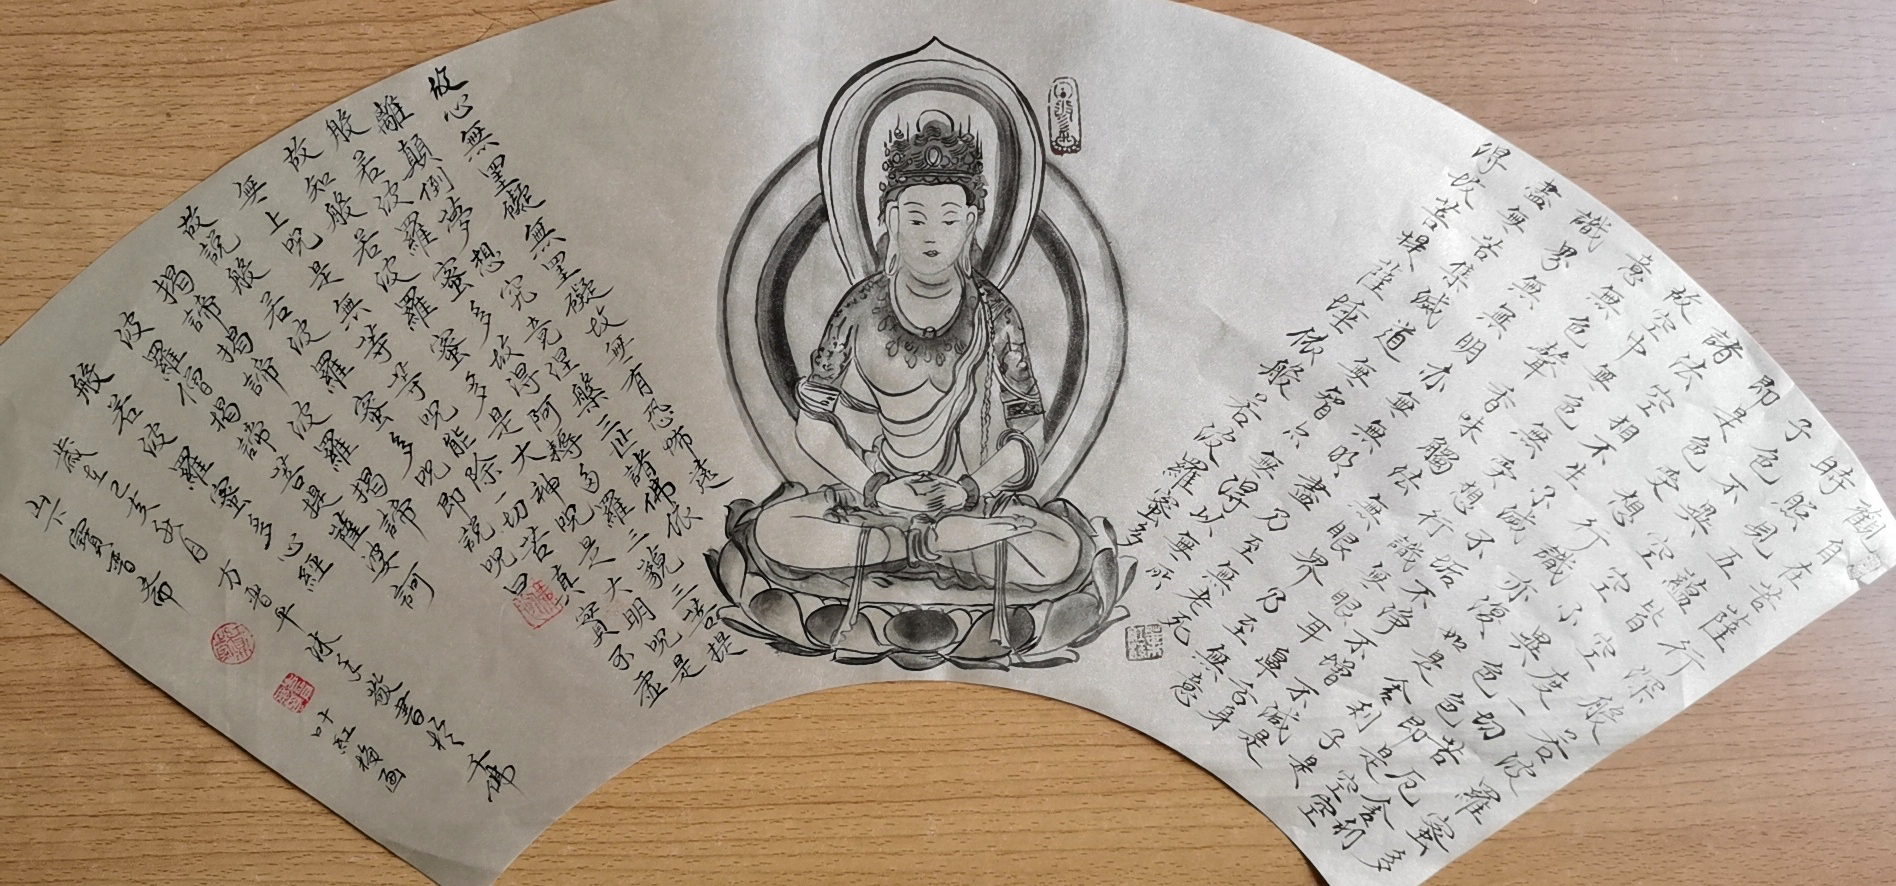 觀自在菩薩行深般若波羅蜜多
時照見五蘊皆空度一切苦厄舍利
子色不異空空不異色色即是空空
即是色受想行識亦復如是舍利子是
諸法空相不生不滅不垢不淨不增不減是
故空中無色無受想行識無眼耳鼻舌身
意無色聲香味觸法無眼界乃至無意
識界無無明亦無無明盡乃至無老死
盡無苦集滅道無智亦無得以無所
得故菩提薩埵依般若波羅蜜多
故心無罣礙無罣礙故無有恐怖遠
離顛倒夢想究竟涅槃三世諸佛依
般若波羅蜜多故得阿耨多羅三藐三菩提
故知般若波羅蜜多是大神咒是大明咒是
無上咒是無等等咒能除一切苦真實不虛
故說般若波羅蜜多咒即說咒曰
揭諦揭諦波羅揭諦
波羅僧揭諦菩提薩婆訶
般若波羅蜜多心經
歲在己亥秋月方普平沐手敬書於千佛
山下寶書齋
叶紅梅画